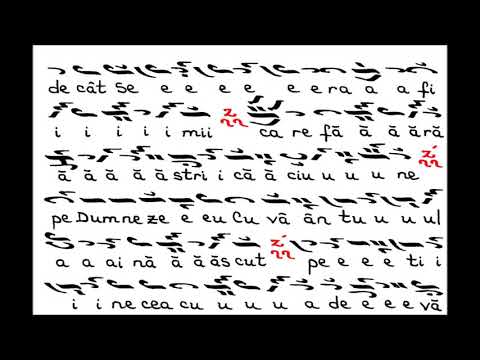 de cât Se e e e e e e ra a a fi
i i i i i mii ca re fă ă ă ără
ă ă ă ă ăstri i că ă ciu u u u ne
pe Dum ne ze e eu Cu vâ ân tu u u ul
a a ai nă ă ă ăs cut pe e e e ti i
i i ne cea cu u u u a de e e e vă